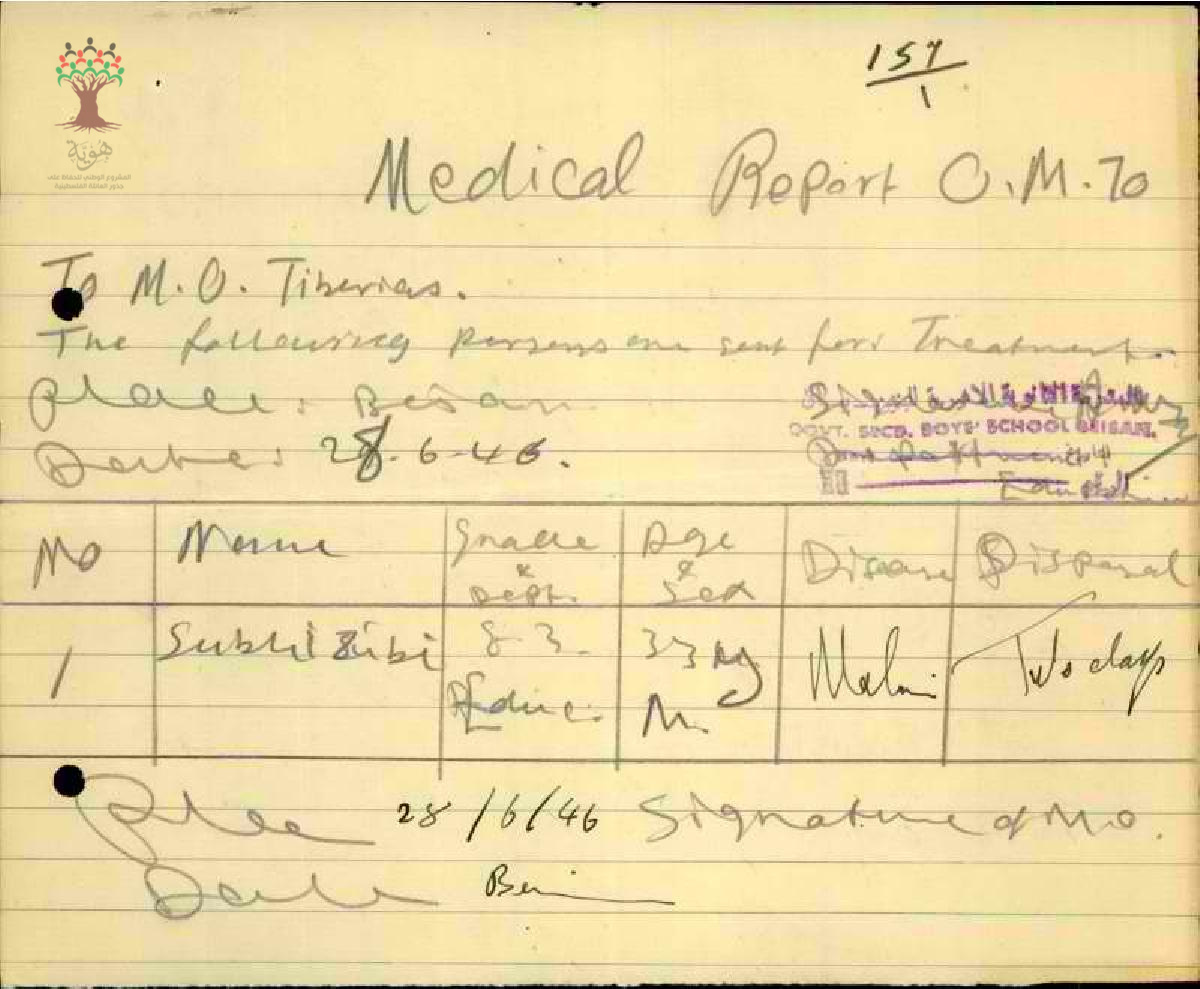 157
1
هوية
المشروع الوطني للحفاظ على
جذور العائلة الفلسطينية
Medical Report O.M.70
To M.O. Tiberias.
The following persons are sent for Treatment.
Place: Beisan
Date: 28.6.46.
GOVT. SECD. BOYS' SCHOOL BEISAN.
No Name Grade & Dept. Age & Sex Disease Disposal
1 Subhi Zubi g 3. Educ. 33 M. Two days
Place 28/6/46 Signature of M.O.
Date